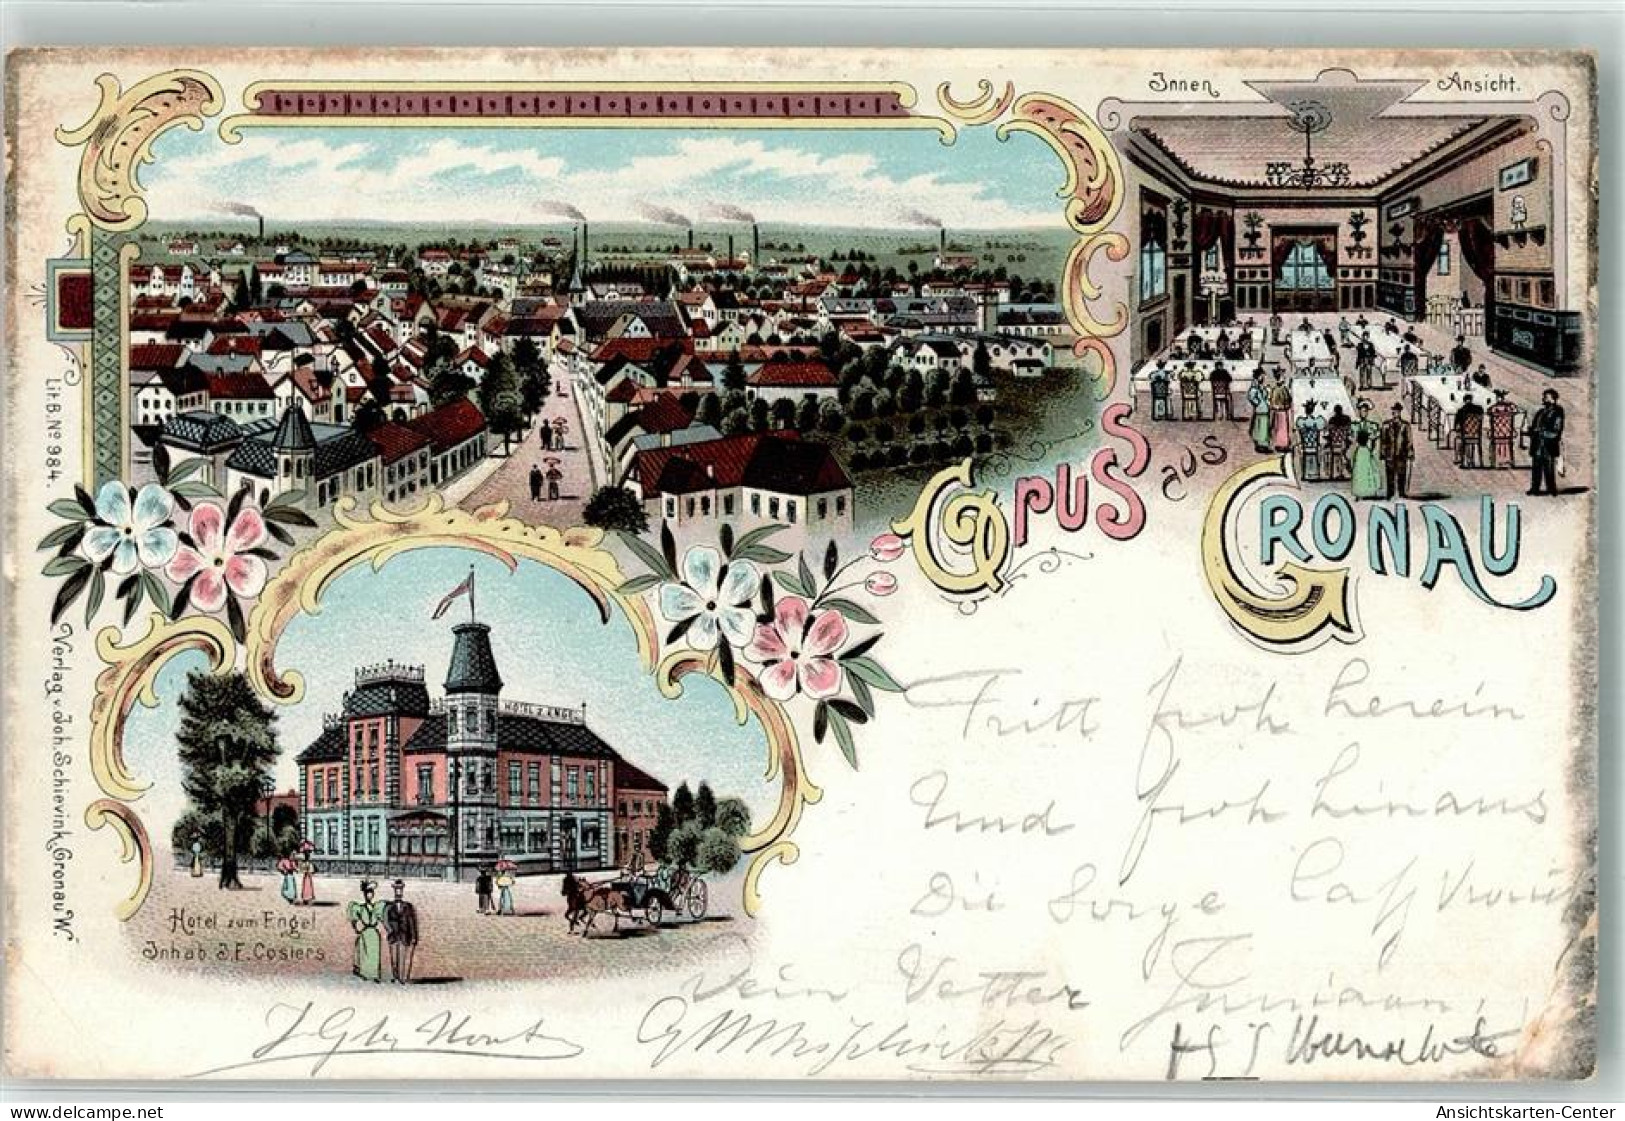 Innen Ansicht.
Gruss aus
Gronau
HOTEL Z. ENGEL
Hotel zum Engel
Inhab. J. F. Cosiers
Lit B. No 984.
Verlag v. Joh. Schievink, Gronau W.
Tritt froh herein
Und froh hinaus
Die Sorge laß
Dein Vetter
delcampe.net
Ansichtskarten-Center